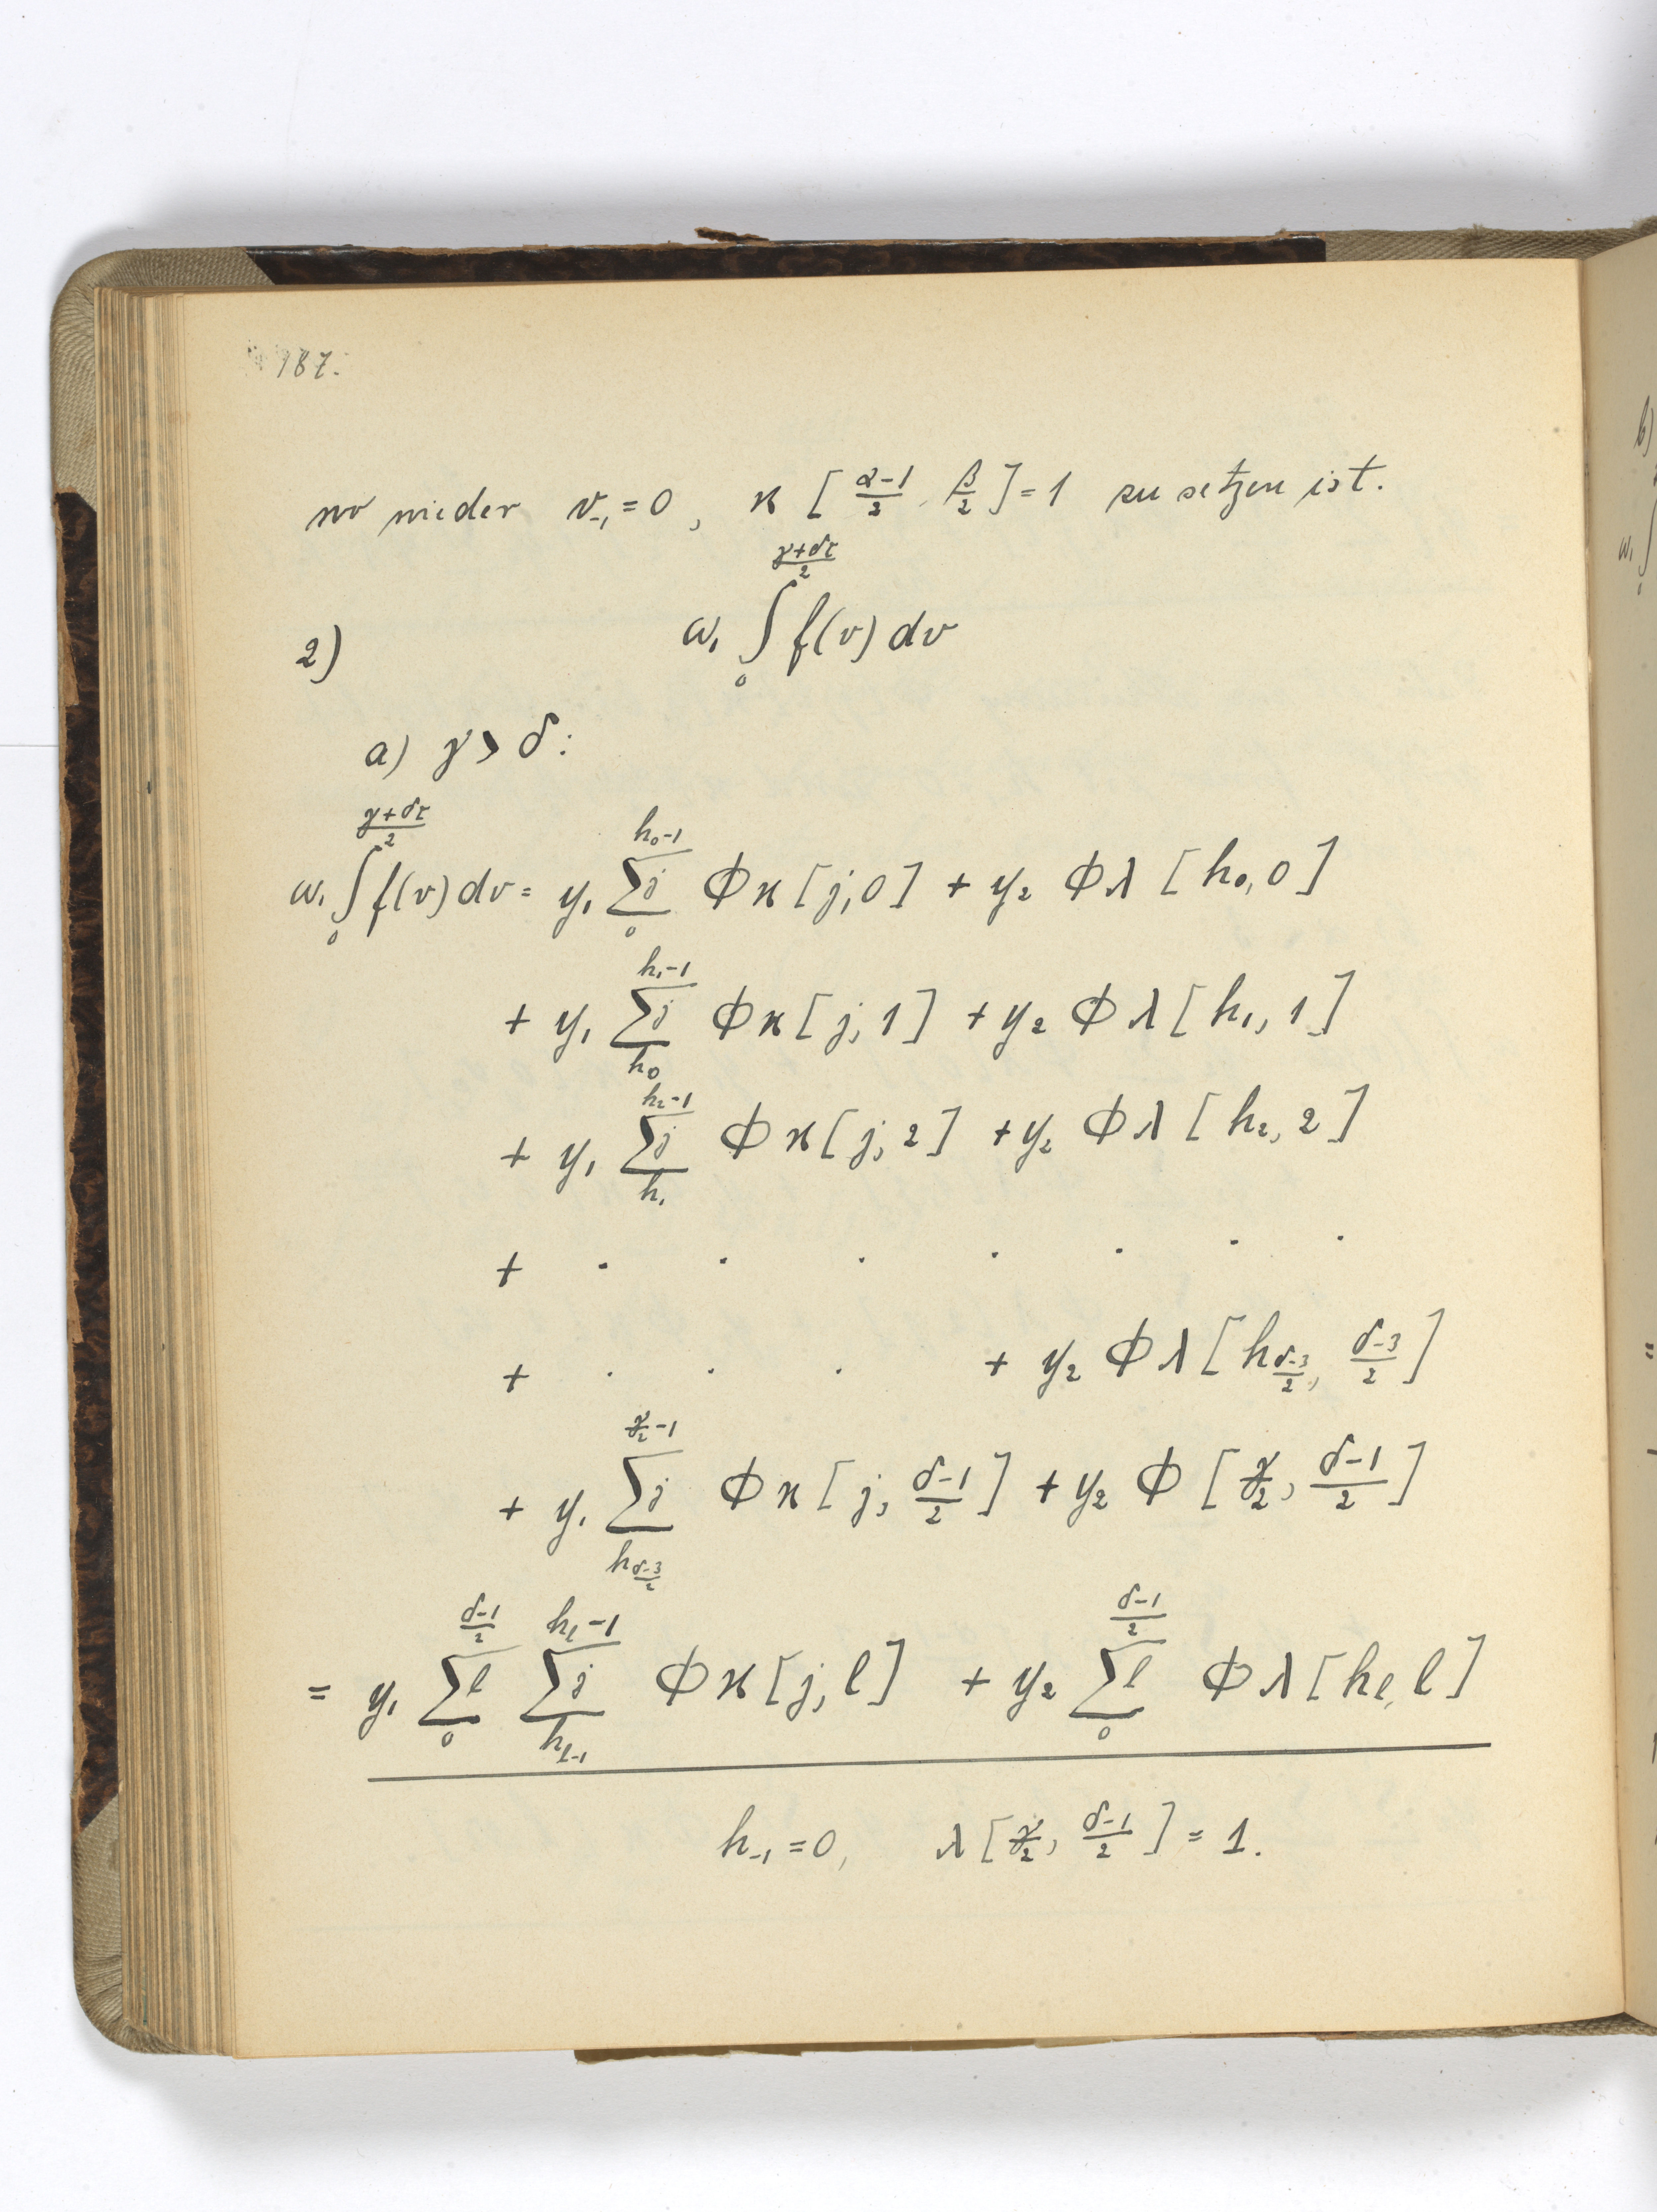 187.
wo wieder v₋₁ = 0, ϰ [ (α-1)/2, β/2 ] = 1 zu setzen ist.
2) ω₁ ∫₀^{(γ+δτ)/2} f(v) dv
a) γ > δ:
ω₁ ∫₀^{(γ+δτ)/2} f(v) dv = y₁ Σj_{0}^{h₀-1} Φϰ [j, 0] + y₂ Φλ [h₀, 0]
+ y₁ Σj_{h₀}^{h₁-1} Φϰ [j, 1] + y₂ Φλ [h₁, 1]
+ y₁ Σj_{h₁}^{h₂-1} Φϰ [j, 2] + y₂ Φλ [h₂, 2]
+ . . . . . . .
+ . . . + y₂ Φλ [h_{(δ-3)/2}, (δ-3)/2]
+ y₁ Σj_{h_{(δ-3)/2}}^{γ/2-1} Φϰ [j, (δ-1)/2] + y₂ Φ [γ/2, (δ-1)/2]
= y₁ Σl_{0}^{(δ-1)/2} Σj_{h_{l-1}}^{h_l-1} Φϰ [j, l] + y₂ Σl_{0}^{(δ-1)/2} Φλ [h_l, l]
h₋₁ = 0, λ [γ/2, (δ-1)/2] = 1.